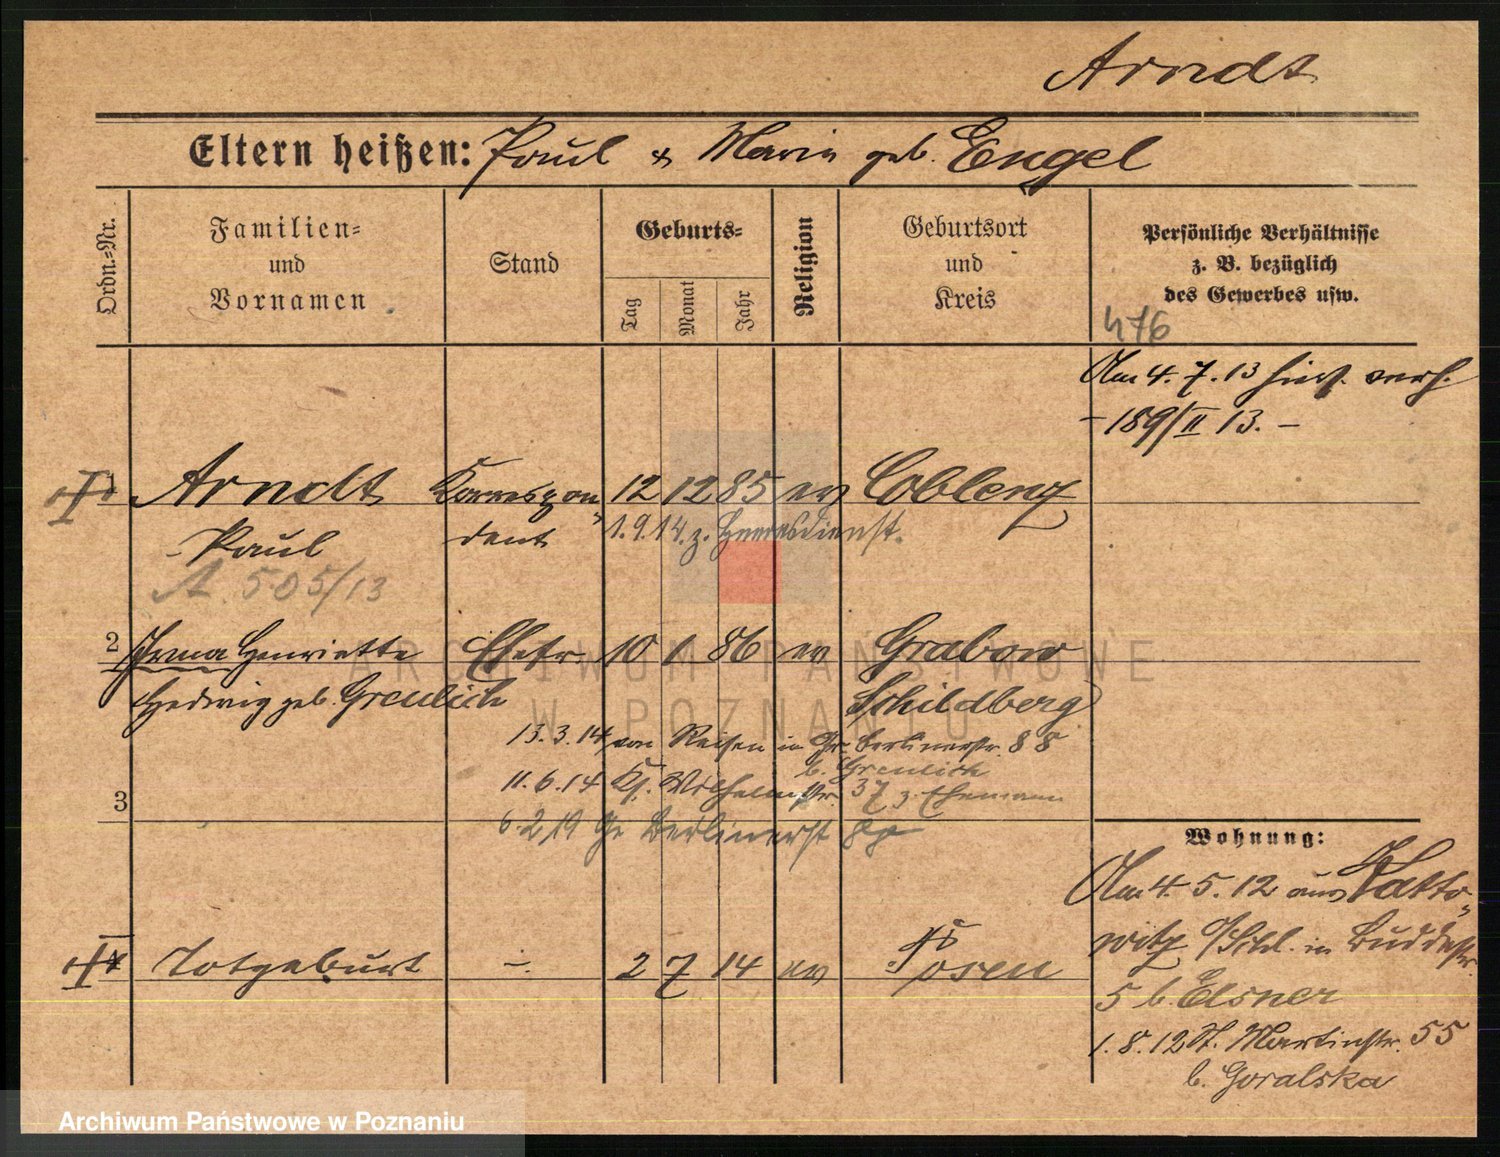 Arndt
Eltern heißen: Paul & Maria geb. Engel
Ordn.-Nr.
Familien-
und
Vornamen
Stand
Geburts-
Tag
Monat
Jahr
Religion
Geburtsort
und
Kreis
Persönliche Verhältnisse
z. B. bezüglich
des Gewerbes usw.
476
Am 4. 7. 13 hier verh.
- 189/II 13. -
1 Arndt Korrespon„ 12 12 85 ev Coblenz
Paul dent 1.9.14 z. Heeresdienst.
A. 505/13
2 Irma Henriette Ehefr. 10 1 86 ev Grabow
Hedwig geb. Greulich Schildberg
13.3.14 von Reisen in Gr. Berlinerstr. 88
b. Greulich
11.6.14 Kg. Wilhelmstr. 37 z. Ehemann
3
6.2.19 Gr Berlinerst 88
Wohnung:
Am 4. 5. 12 aus Katto„
witz O/Schl. in Buddestr.
Totgeburt -. 2 7 14 ev Posen
5 b. Elsner
1.8.12 St. Martinstr. 55
b. Goralska
ARCHIWUM PAŃSTWOWE
W POZNANIU
Archiwum Państwowe w Poznaniu